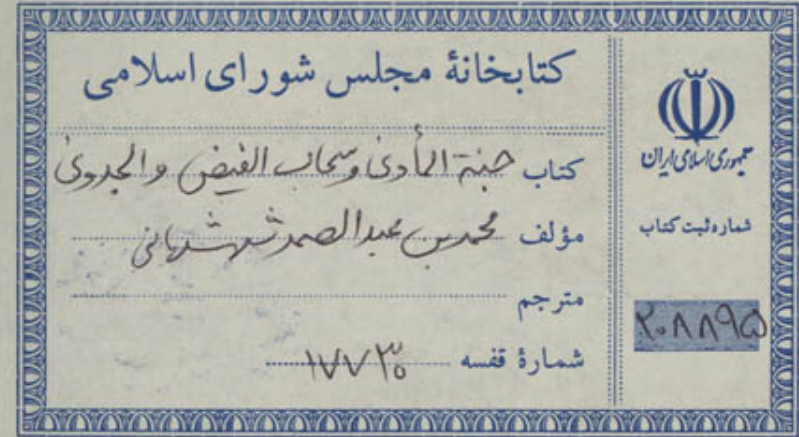 کتابخانهٔ مجلس شورای اسلامی
کتاب جنة المأوی و سحاب الفیض والجدوی
مؤلف محمد بن عبدالصمد شهشهانی
مترجم
شمارهٔ قفسه ۱۷۷۳۰
جمهوری اسلامی ایران
شماره ثبت کتاب
۲۰۸۸۹۵